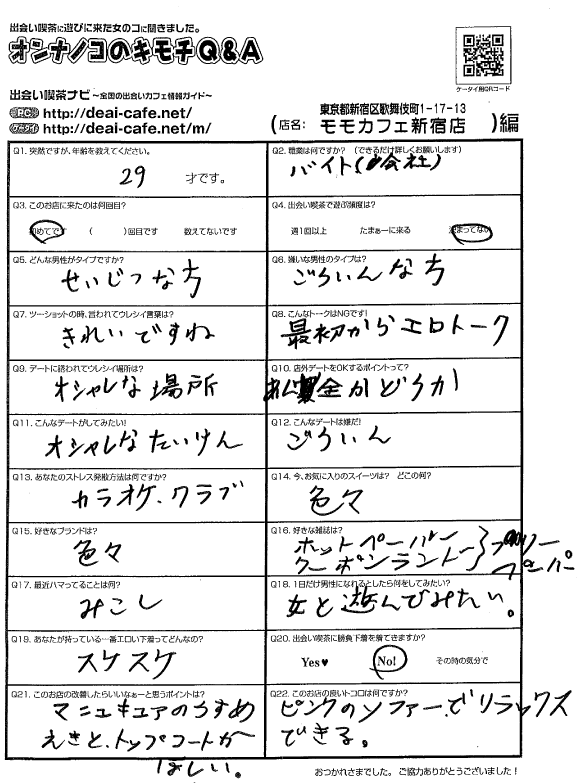 出会い喫茶に遊びに来た女のコに聞きました。
オンナノコのキモチQ&A
ケータイ用QRコード
出会い喫茶ナビ～全国の出会いカフェ情報ガイド～
PC http://deai-cafe.net/
ケータイ http://deai-cafe.net/m/
東京都新宿区歌舞伎町1-17-13
(店名: モモカフェ新宿店 )編
Q1. 突然ですが、年齢を教えてください。
29 才です。
Q2. 職業は何ですか? (できるだけ詳しくお願いします)
バイト(会社)
Q3. このお店に来たのは何回目?
初めてです ( )回目です 数えてないです
Q4. 出会い喫茶で遊ぶ頻度は?
週1回以上 たまぁーに来る 決まってない
Q5. どんな男性がタイプですか?
せいじつな方
Q6. 嫌いな男性のタイプは?
ごういんな方
Q7. ツーショットの時、言われてウレシイ言葉は?
きれいですね
Q8. こんなトークはNGです!
最初からエロトーク
Q9. デートに誘われてウレシイ場所は?
オシャレな場所
Q10. 店外デートをOKするポイントって?
安全かどうか
Q11. こんなデートがしてみたい!
オシャレなたいけん
Q12. こんなデートは嫌だ!
ごういん
Q13. あなたのストレス発散方法は何ですか?
カラオケ、クラブ
Q14. 今、お気に入りのスイーツは? どこの何?
色々
Q15. 好きなブランドは?
色々
Q16. 好きな雑誌は?
ホットペーパー
クーポンランド
フリー
ペーパー
Q17. 最近ハマってることは何?
みこし
Q18. 1日だけ男性になれるとしたら何をしてみたい?
女と遊んでみたい。
Q19. あなたが持っている…番エロい下着ってどんなの?
スケスケ
Q20. 出会い喫茶に勝負下着を着てきますか?
Yes♥ No! その時の気分で
Q21. このお店の改善したらいいなぁーと思うポイントは?
マニュキュアのうすめ
えきと、トップコートが
ほしい。
Q22. このお店の良いトコロは何ですか?
ピンクのソファーでリラックス
できる。
おつかれさまでした。ご協力ありがとうございました!